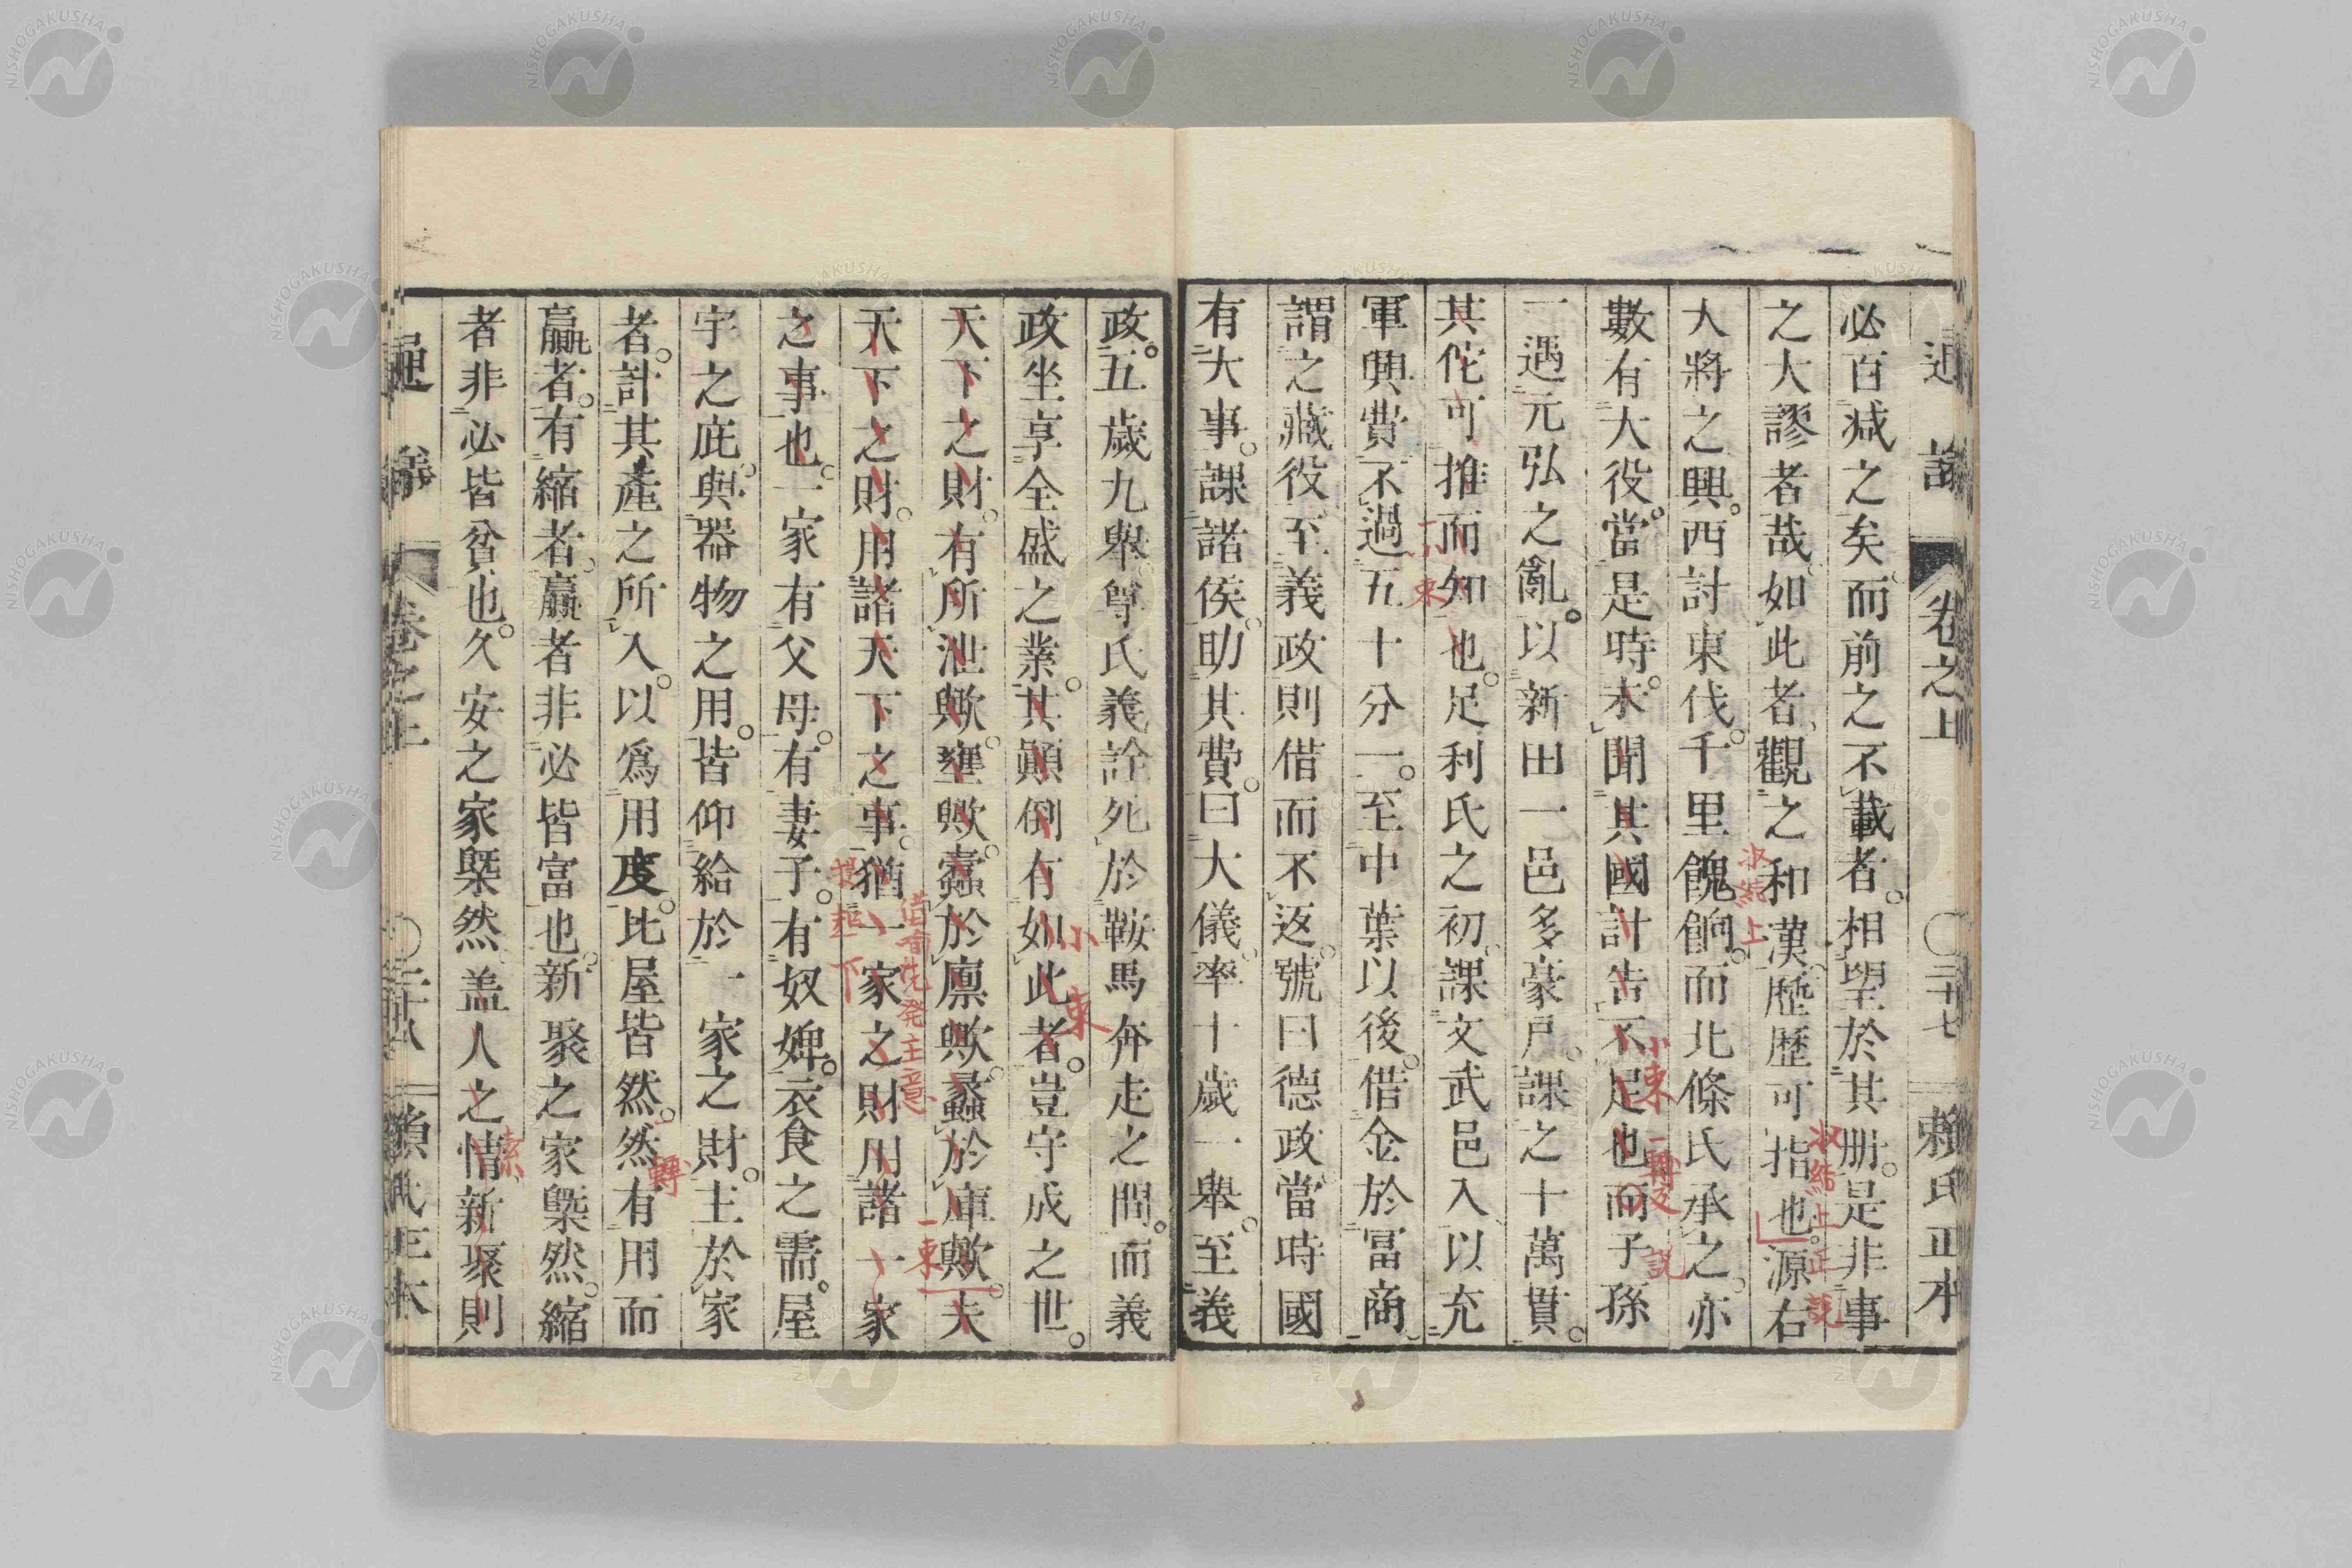 通議 卷之上 〇三十七 賴氏正本
必百减之矣而前之不載者相望於其册是非事
之大謬者哉如此者觀之和漢歷歷可指也源右
大將之興西討東伐千里餽餉而北條氏承之亦
數有大役當是時未聞其國計告不足也而子孫
一遇元弘之亂以新田一邑多豪戶課之十萬貫
其佗可推而知也足利氏之初課文武邑入以充
軍興費不過五十分一至中葉以後借金於冨商
謂之藏役至義政則借而不返號曰德政當時國
有大事課諸侯助其費曰大儀率十歲一舉至義
政五歲九舉尊氏義詮死於鞍馬奔走之間而義
政坐享全盛之業其顚倒有如此者豈守成之世
天下之財有所泄歟壅歟蠹於廪歟蟊於庫歟夫
天下之財用諸天下之事猶一家之財用諸一家
之事也一家有父母有妻子有奴婢衣食之需屋
宇之庇與器物之用皆仰給於一家之財主於家
者計其產之所入以爲用度比屋皆然然有用而
贏者有縮者贏者非必皆富也新聚之家槩然縮
者非必皆貧也久安之家槩然盖人之情新聚則
通議 卷之上 〇三十八 賴氏正本
小束
一轉
正說
小束
小束
借面先発主意
提起下
一束
轉